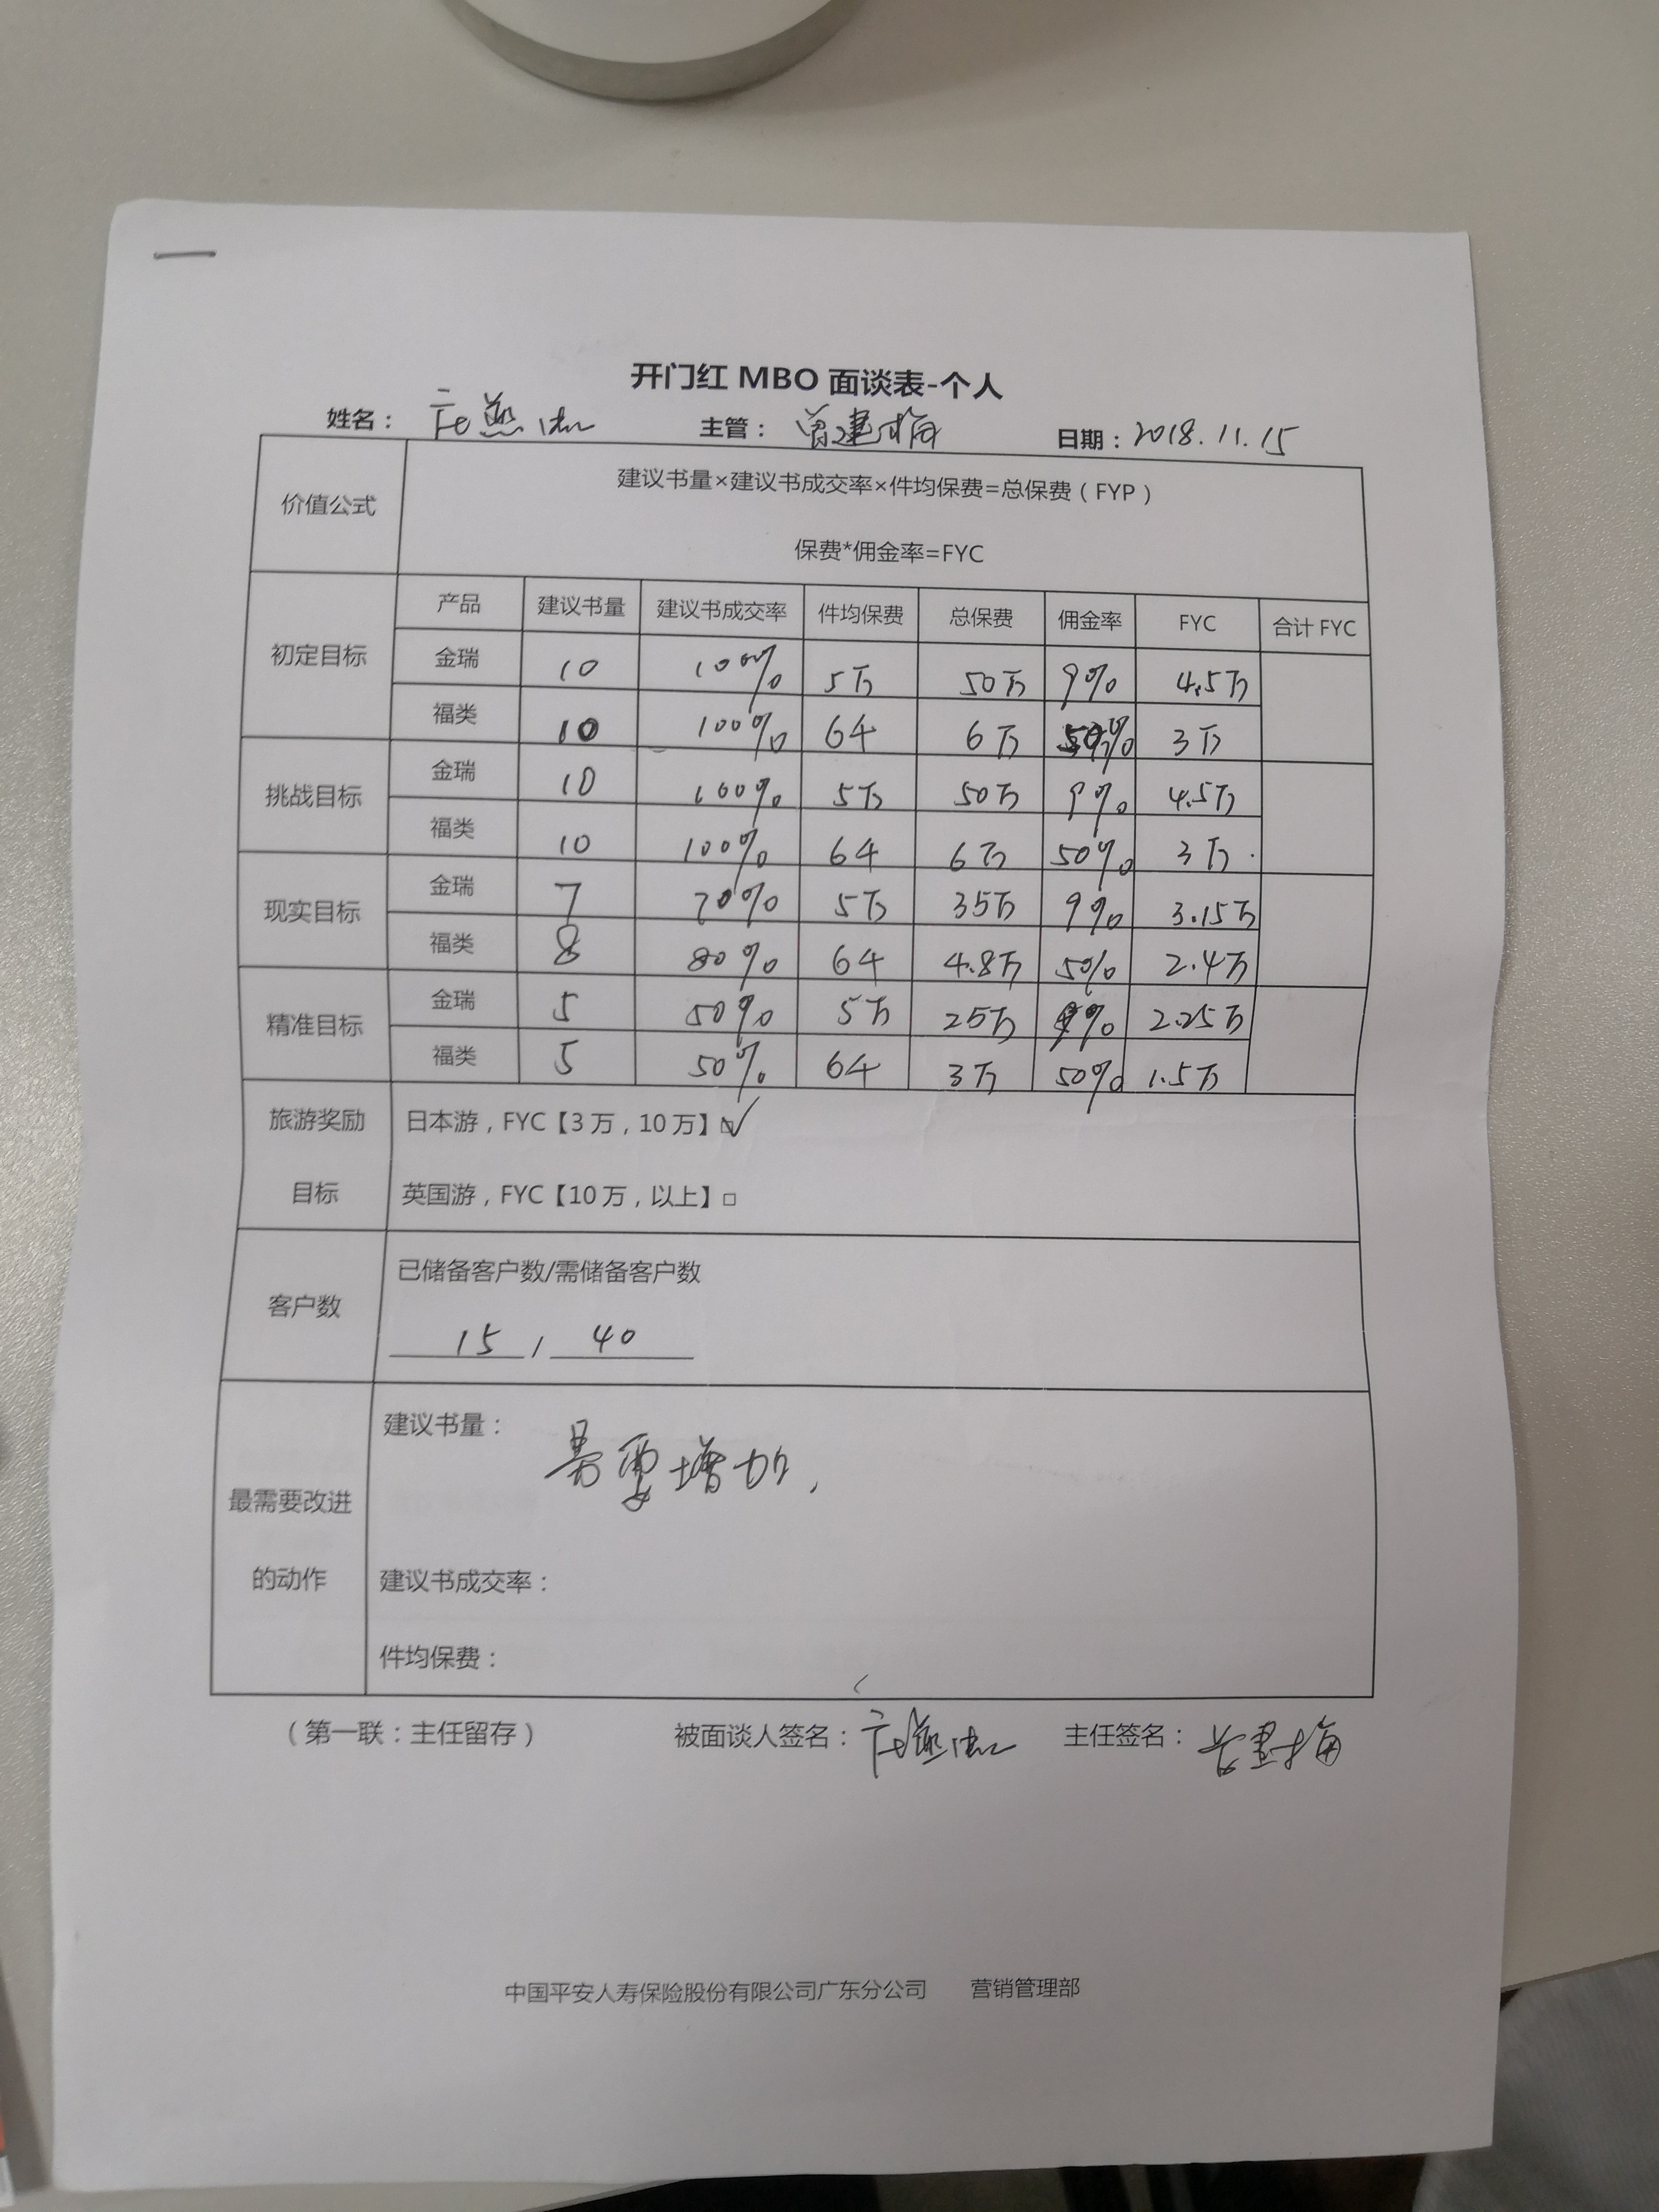 开门红 MBO 面谈表-个人
姓名： 主管：曾建梅 日期：2018.11.15
价值公式 建议书量×建议书成交率×件均保费=总保费（FYP）
保费*佣金率=FYC
产品 建议书量 建议书成交率 件均保费 总保费 佣金率 FYC 合计 FYC
初定目标
金瑞 10 100% 5万 50万 9% 4.5万
福类 10 100% 64 6万 50% 3万
挑战目标
金瑞 10 100% 5万 50万 9% 4.5万
福类 10 100% 64 6万 50% 3万
现实目标
金瑞 7 70% 5万 35万 9% 3.15万
福类 8 80% 64 4.8万 50% 2.4万
精准目标
金瑞 5 50% 5万 25万 9% 2.25万
福类 5 50% 64 3万 50% 1.5万
旅游奖励 日本游，FYC【3万，10万】☑
目标 英国游，FYC【10万，以上】□
已储备客户数/需储备客户数
客户数
15 / 40
建议书量：
需要增加，
最需要改进
的动作 建议书成交率：
件均保费：
（第一联：主任留存） 被面谈人签名： 主任签名：曾建梅
中国平安人寿保险股份有限公司广东分公司 营销管理部